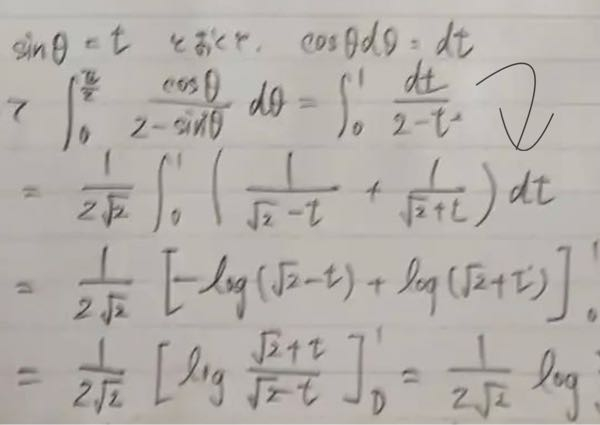 sinθ = t とおくと、 cosθdθ = dt
∫₀^{π/2} cosθ/(2-sin²θ) dθ = ∫₀¹ dt/(2-t²)
= 1/(2√2) ∫₀¹ ( 1/(√2-t) + 1/(√2+t) ) dt
= 1/(2√2) [ -log(√2-t) + log(√2+t) ]₀¹
= 1/(2√2) [ log (√2+t)/(√2-t) ]₀¹ = 1/(2√2) log